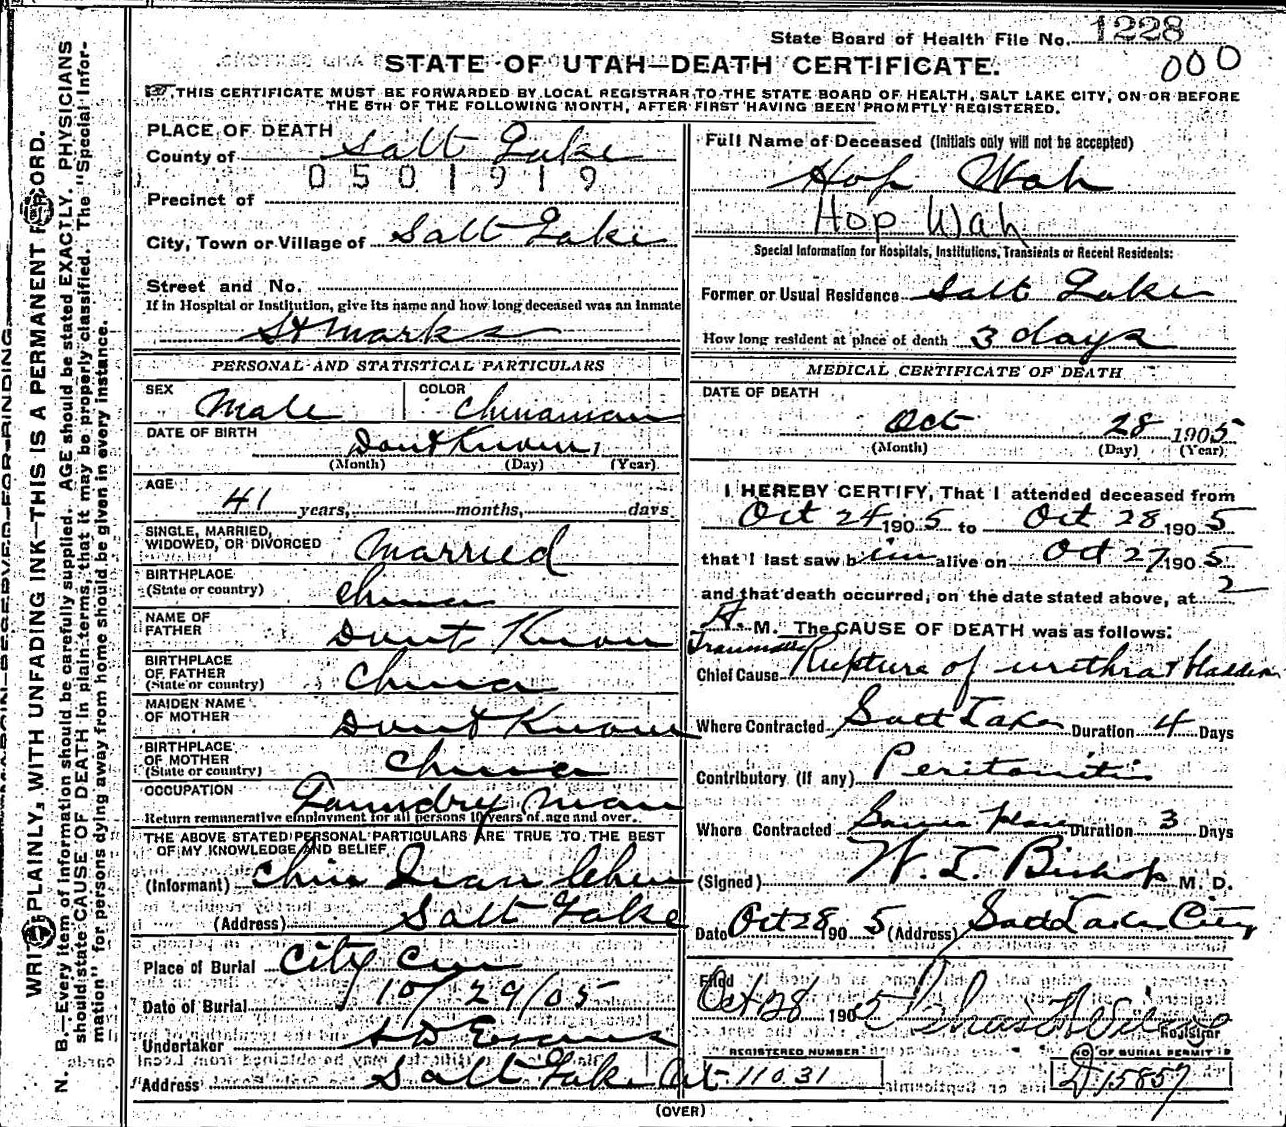 State Board of Health File No. 1228
000
STATE OF UTAH—DEATH CERTIFICATE.
THIS CERTIFICATE MUST BE FORWARDED BY LOCAL REGISTRAR TO THE STATE BOARD OF HEALTH, SALT LAKE CITY, ON OR BEFORE
THE 5TH OF THE FOLLOWING MONTH, AFTER FIRST HAVING BEEN PROMPTLY REGISTERED.
PLACE OF DEATH
County of Salt Lake
0501919
Precinct of
City, Town or Village of Salt Lake
Street and No.
If in Hospital or Institution, give its name and how long deceased was an inmate
St Marks
PERSONAL AND STATISTICAL PARTICULARS
SEX Male COLOR Chinaman
DATE OF BIRTH Dont Know 1
(Month) (Day) (Year)
AGE 41 years, months, days
SINGLE, MARRIED,
WIDOWED, OR DIVORCED Married
BIRTHPLACE
(State or country) China
NAME OF
FATHER Dont Know
BIRTHPLACE
OF FATHER
(State or country) China
MAIDEN NAME
OF MOTHER Dont Know
BIRTHPLACE
OF MOTHER
(State or country) China
OCCUPATION Laundry Man
Return remunerative employment for all persons 10 years of age and over.
THE ABOVE STATED PERSONAL PARTICULARS ARE TRUE TO THE BEST
OF MY KNOWLEDGE AND BELIEF
(Informant)
(Address) Salt Lake
Place of Burial City Cem
Date of Burial 10/29/05
Undertaker S D Evans
Address Salt Lake Cit
Full Name of Deceased (Initials only will not be accepted)
Hop Wah
Hop Wah
Special Information for Hospitals, Institutions, Transients or Recent Residents:
Former or Usual Residence Salt Lake
How long resident at place of death 3 days
MEDICAL CERTIFICATE OF DEATH
DATE OF DEATH
Oct 28 1905
(Month) (Day) (Year)
I HEREBY CERTIFY, That I attended deceased from
Oct 24 1905 to Oct 28 1905
that I last saw him alive on Oct 27 1905
and that death occurred, on the date stated above, at 2
A. M. The CAUSE OF DEATH was as follows:
Traumatic
Chief Cause Rupture of urethra & bladder
Where Contracted Salt Lake Duration 4 Days
Contributory (if any) Peritonitis
Where Contracted Same place Duration 3 Days
(Signed) W. T. Bishop M. D.
Date Oct 28 1905 (Address) Salt Lake City
Filed
Oct 28 1905
Registrar
REGISTERED NUMBER 11031
NO OF BURIAL PERMIT
D15857
(OVER)
MARGIN RESERVED FOR BINDING
WRITE PLAINLY, WITH UNFADING INK—THIS IS A PERMANENT RECORD.
N. B.—Every item of information should be carefully supplied. AGE should be stated EXACTLY. PHYSICIANS
should state CAUSE OF DEATH in plain terms, that it may be properly classified. The "Special Infor-
mation" for persons dying away from home should be given in every instance.